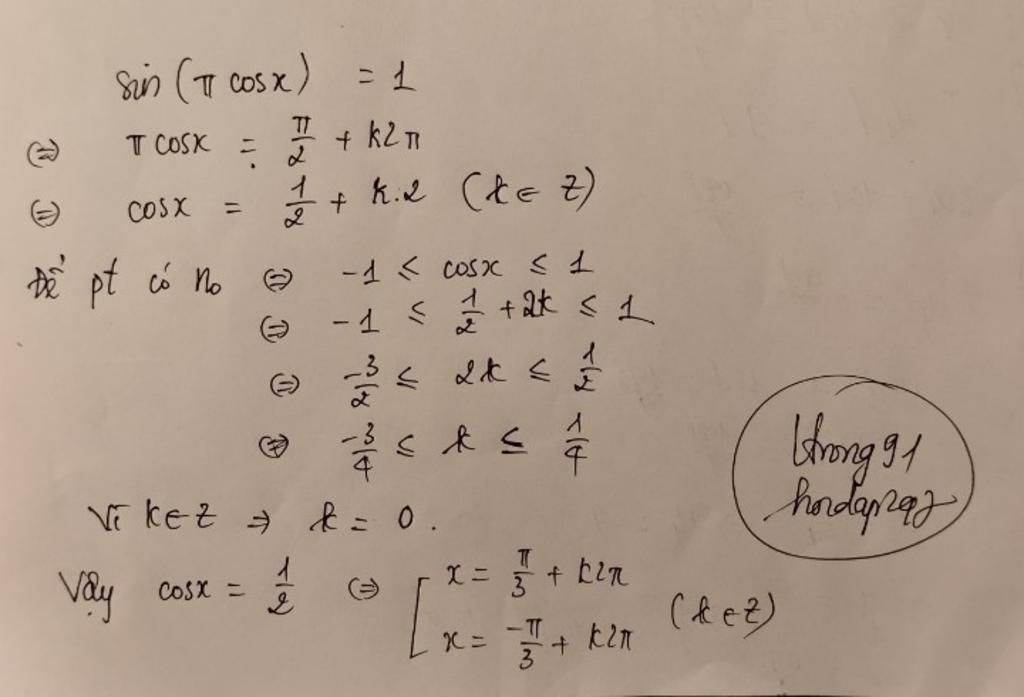 sin(π cosx) = 1
⇔ π cosx = π/2 + k2π
⇔ cosx = 1/2 + k.2 (k ∈ Z)
Để pt có no ⇔ -1 ≤ cosx ≤ 1
⇔ -1 ≤ 1/2 + 2k ≤ 1
⇔ -3/2 ≤ 2k ≤ 1/2
⇔ -3/4 ≤ k ≤ 1/4
Vì k∈Z ⇒ k = 0.
Vậy cosx = 1/2 ⇔ [ x = π/3 + k2π
x = -π/3 + k2π (k∈Z)